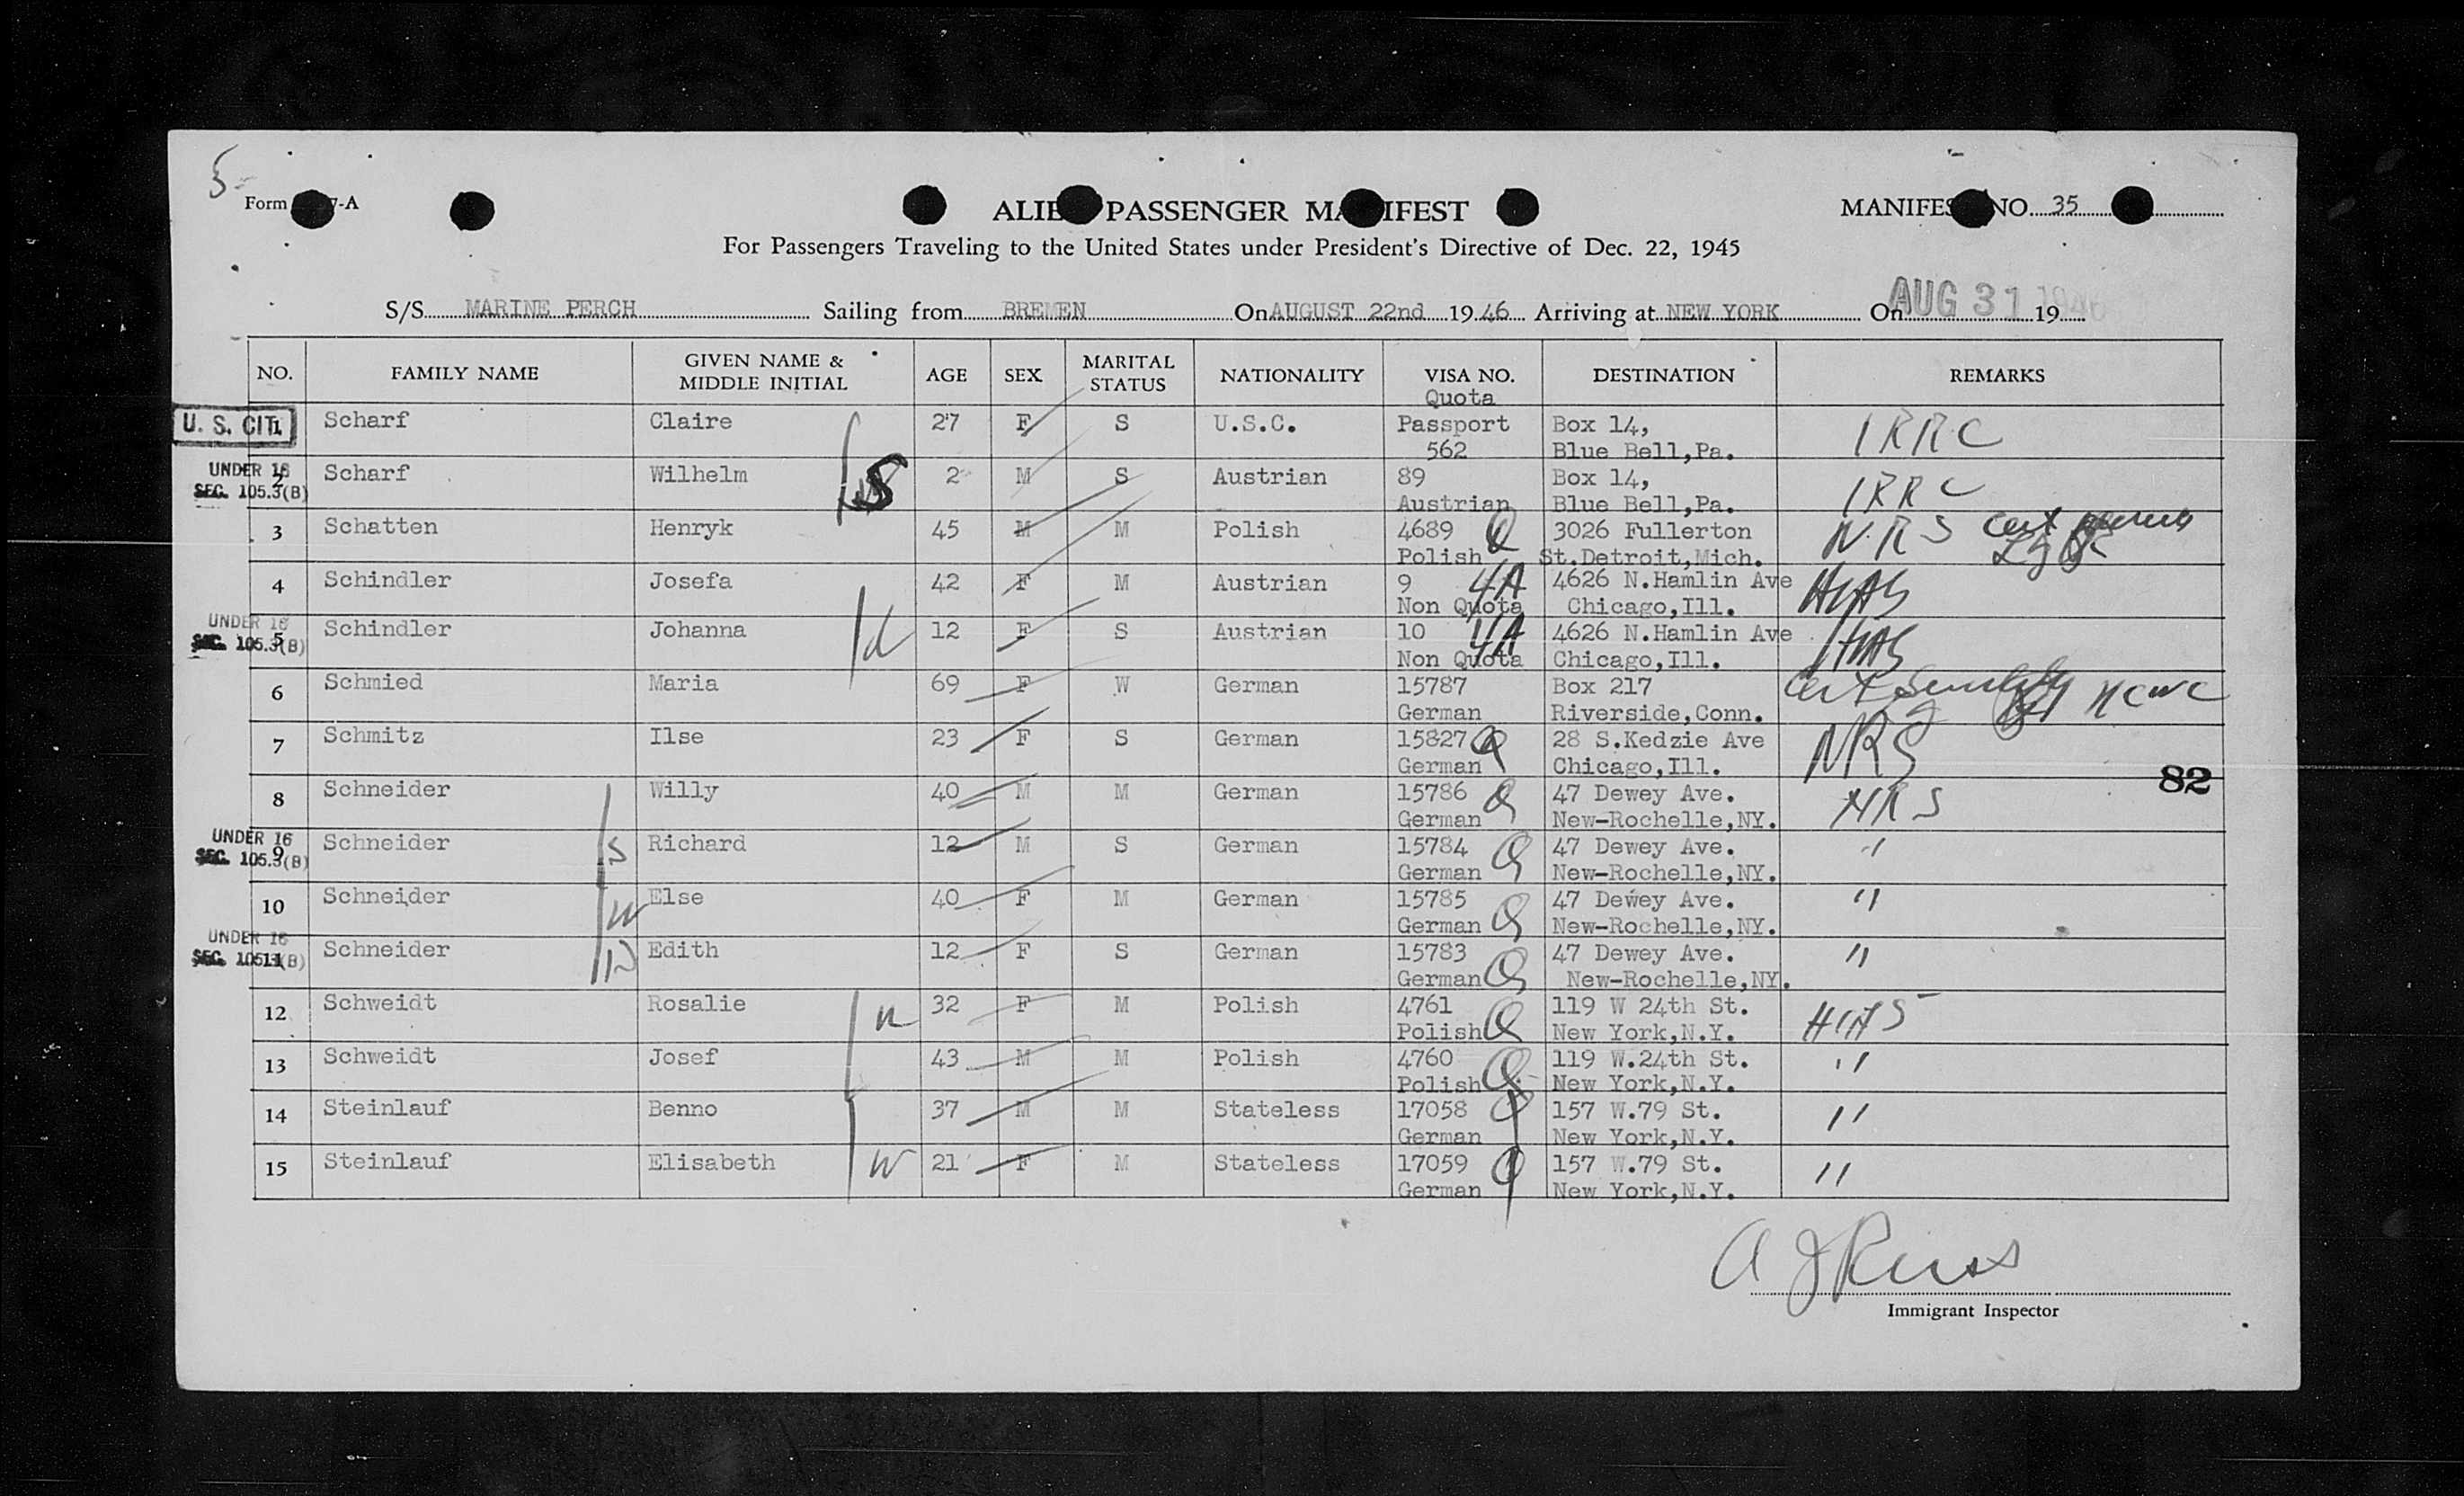 Form -A
ALIEN PASSENGER MANIFEST
MANIFEST NO. 35
For Passengers Traveling to the United States under President's Directive of Dec. 22, 1945
S/S MARINE PERCH Sailing from BREMEN On AUGUST 22nd 19 46 Arriving at NEW YORK On AUG 31 1946 19
NO. FAMILY NAME GIVEN NAME & MIDDLE INITIAL AGE SEX MARITAL STATUS NATIONALITY VISA NO. Quota DESTINATION REMARKS
U. S. CIT. 1 Scharf Claire 27 F S U.S.C. Passport Box 14, IRRC
562 Blue Bell,Pa.
UNDER 16 2 Scharf Wilhelm S 2 M S Austrian 89 Box 14, IRRC
SEC. 105.3(B) Austrian Blue Bell,Pa.
3 Schatten Henryk 45 M M Polish 4689 Q 3026 Fullerton N.R.S
Polish St.Detroit,Mich.
4 Schindler Josefa 42 F M Austrian 9 4A 4626 N.Hamlin Ave HIAS
Non Quota Chicago,Ill.
UNDER 16 5 Schindler Johanna d 12 F S Austrian 10 4A 4626 N.Hamlin Ave HIAS
SEC. 105.3(B) Non Quota Chicago,Ill.
6 Schmied Maria 69 F W German 15787 Box 217 NCWC
German Riverside,Conn.
7 Schmitz Ilse 23 F S German 15827 Q 28 S.Kedzie Ave NRS
German Chicago,Ill.
82
8 Schneider Willy 40 M M German 15786 Q 47 Dewey Ave. NRS
German New-Rochelle,NY.
UNDER 16 9 Schneider S Richard 12 M S German 15784 Q 47 Dewey Ave. "
SEC. 105.3(B) German New-Rochelle,NY.
10 Schneider W Else 40 F M German 15785 Q 47 Dewey Ave. "
German New-Rochelle,NY.
UNDER 16 11 Schneider D Edith 12 F S German 15783 Q 47 Dewey Ave. "
SEC. 105.3(B) German New-Rochelle,NY.
12 Schweidt Rosalie W 32 F M Polish 4761 Q 119 W 24th St. HIAS
Polish New York,N.Y.
13 Schweidt Josef 43 M M Polish 4760 Q 119 W.24th St. "
Polish New York,N.Y.
14 Steinlauf Benno 37 M M Stateless 17058 Q 157 W.79 St. "
German New York,N.Y.
15 Steinlauf Elisabeth W 21 F M Stateless 17059 Q 157 W.79 St. "
German New York,N.Y.
Immigrant Inspector